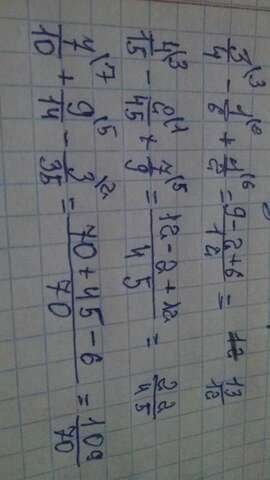 3/4\3 - 1/6\2 + 1/2\6 = (9-2+6)/12 = 13/12
4/15\3 - 2/45\1 + /9\5 = (12-2+12)/45 = 22/45
/10\7 + 9/14\5 - 3/35\2 = (70+45-6)/70 = 109/70